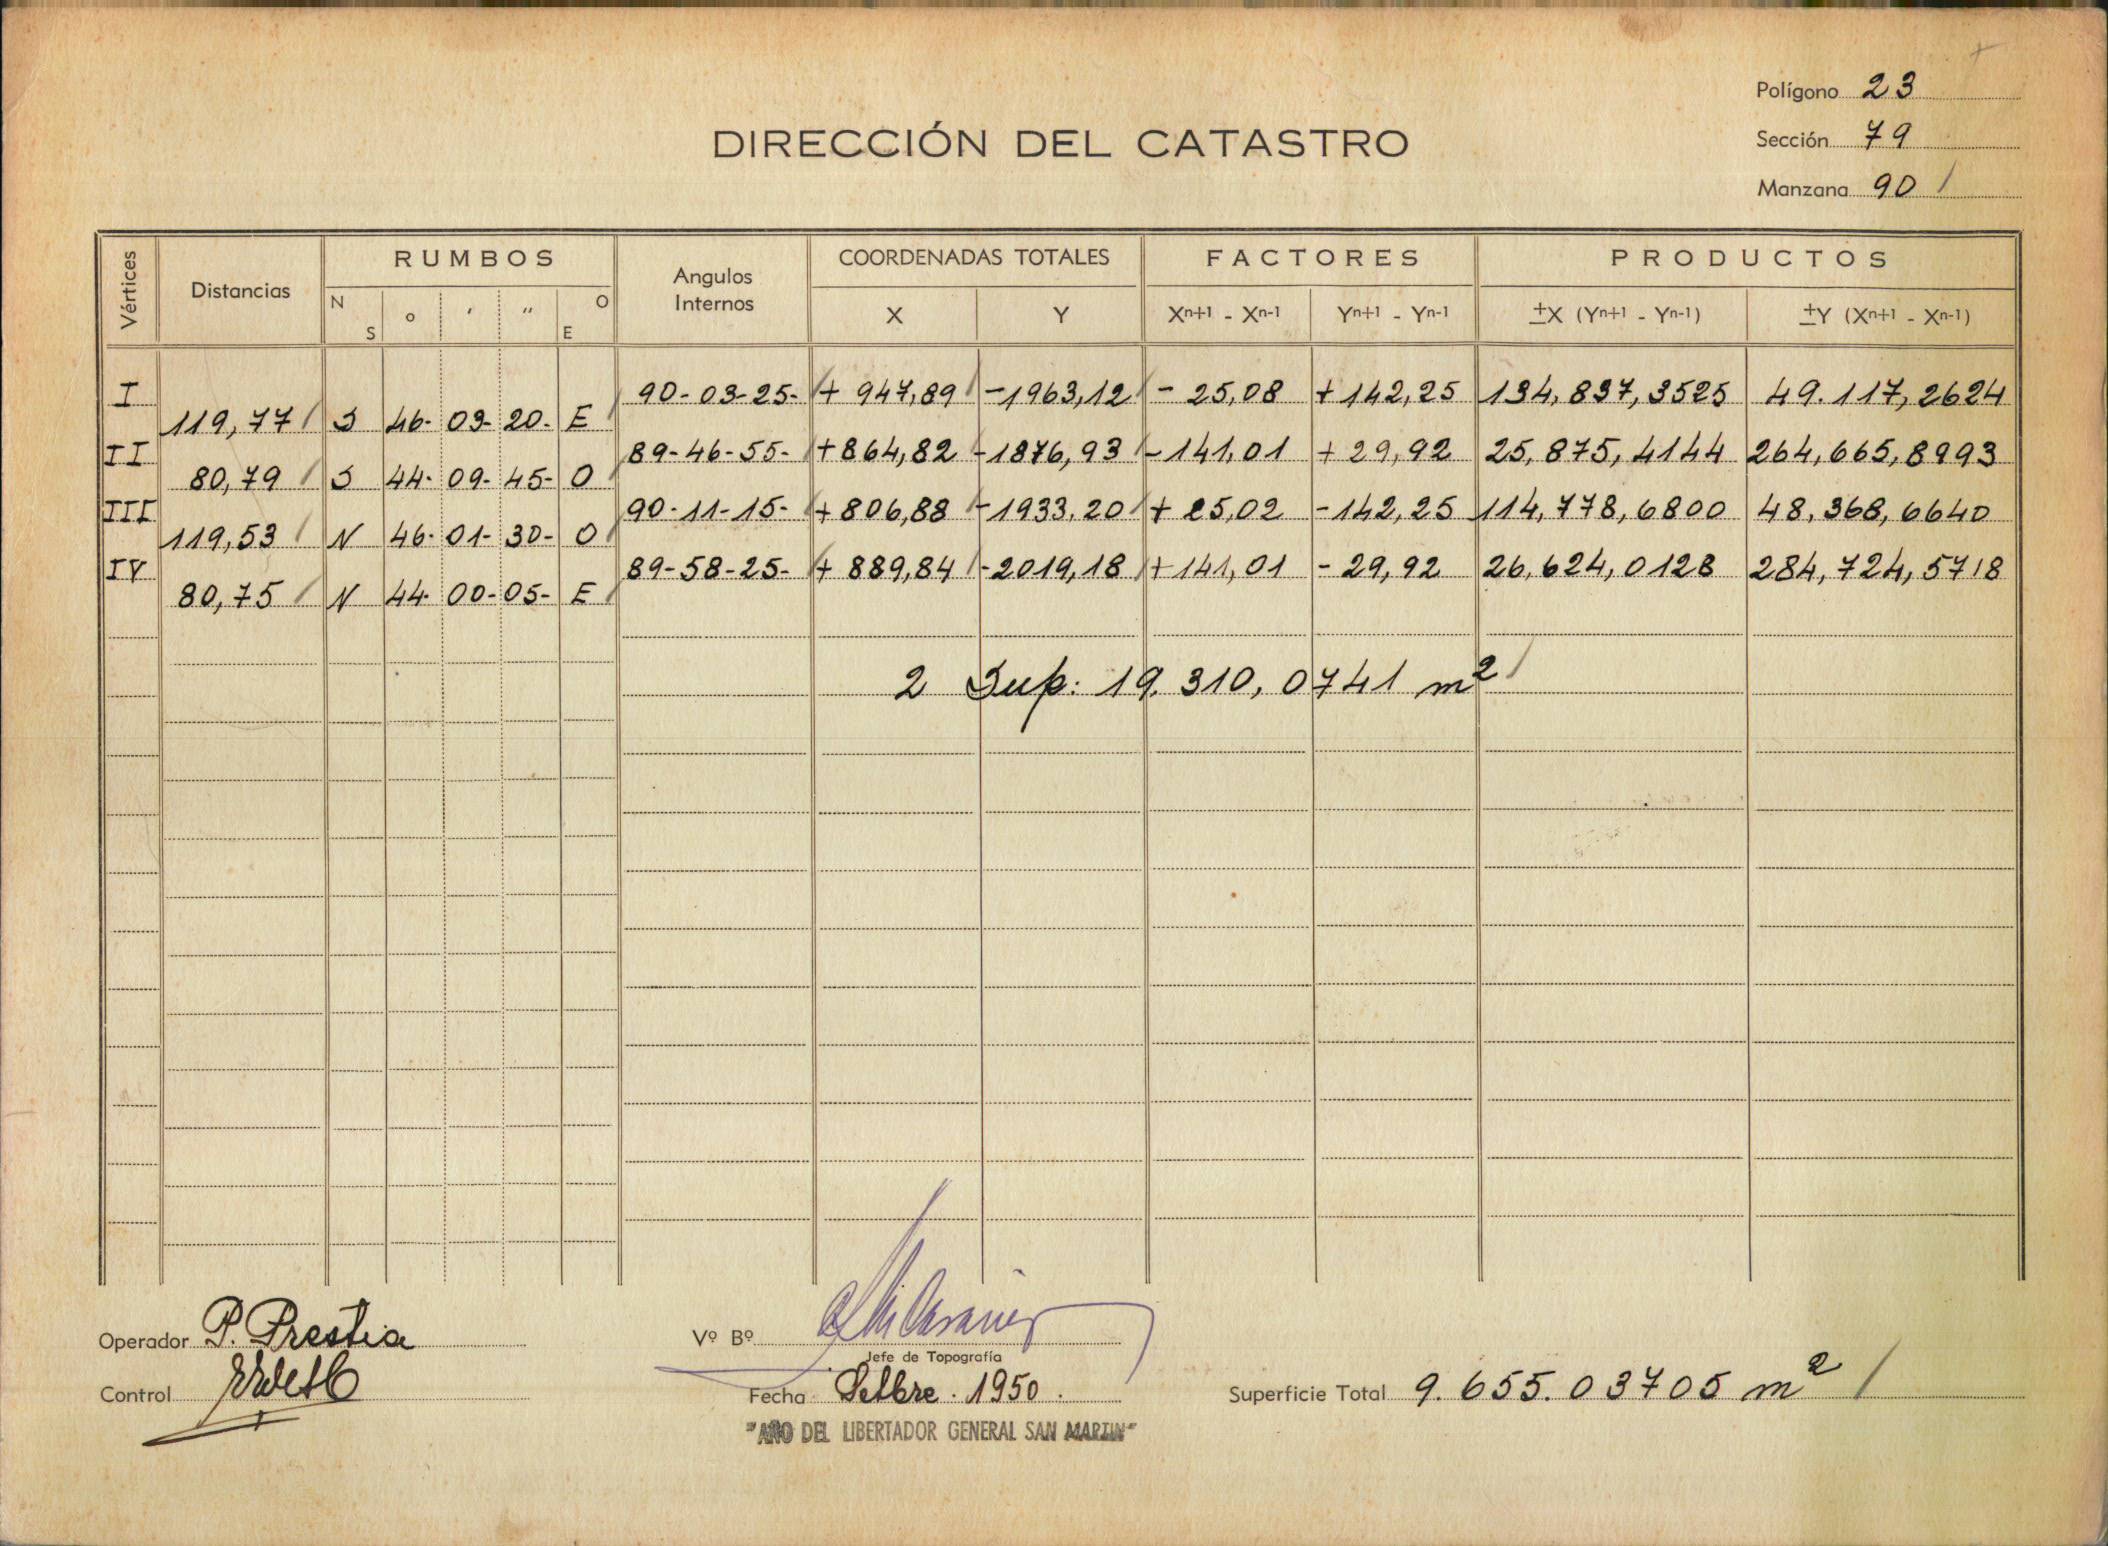 Polígono 23
DIRECCIÓN DEL CATASTRO
Sección 79
Manzana 90
Vértices Distancias RUMBOS Angulos Internos COORDENADAS TOTALES FACTORES PRODUCTOS
N S ° ' " O E X Y Xn+1 - Xn-1 Yn+1 - Yn-1 ±X (Yn+1 - Yn-1) ±Y (Xn+1 - Xn-1)
I 90-03-25- + 947,89 -1963,12 - 25,02 +142,25 134,837,3525 49.117,2624
119,77 S 46- 03- 20- E
II 89-46-55- +864,82 -1876,93 -141,01 +29,92 25,875,4144 264,665,8993
80,79 S 44- 09- 45- O
III 90-11-15- +806,88 -1933,20 +25,02 -142,25 114,778,6800 48,368,6640
119,53 N 46- 01- 30- O
IV 89-58-25- + 889,84 -2019,18 +141,01 -29,92 26,624,0128 284,724,5718
80,75 N 44- 00- 05- E
2 Sup: 19.310,0741 m2
Operador P. Prestia Vº Bº
Jefe de Topografía
Control Fecha Setbre. 1950. Superficie Total 9.655.03705 m2
"AÑO DEL LIBERTADOR GENERAL SAN MARTIN"